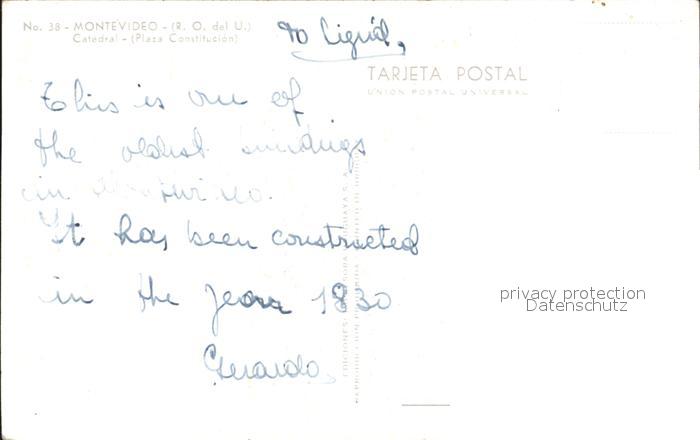 No. 38 - MONTEVIDEO - (R. O. del U.)
Catedral - (Plaza Constitución)
to
TARJETA POSTAL
UNION POSTAL UNIVERSAL
This is one of
the oldest buildings
in
It has been constructed
in the year 1830
Gerardo,
privacy protection
Datenschutz